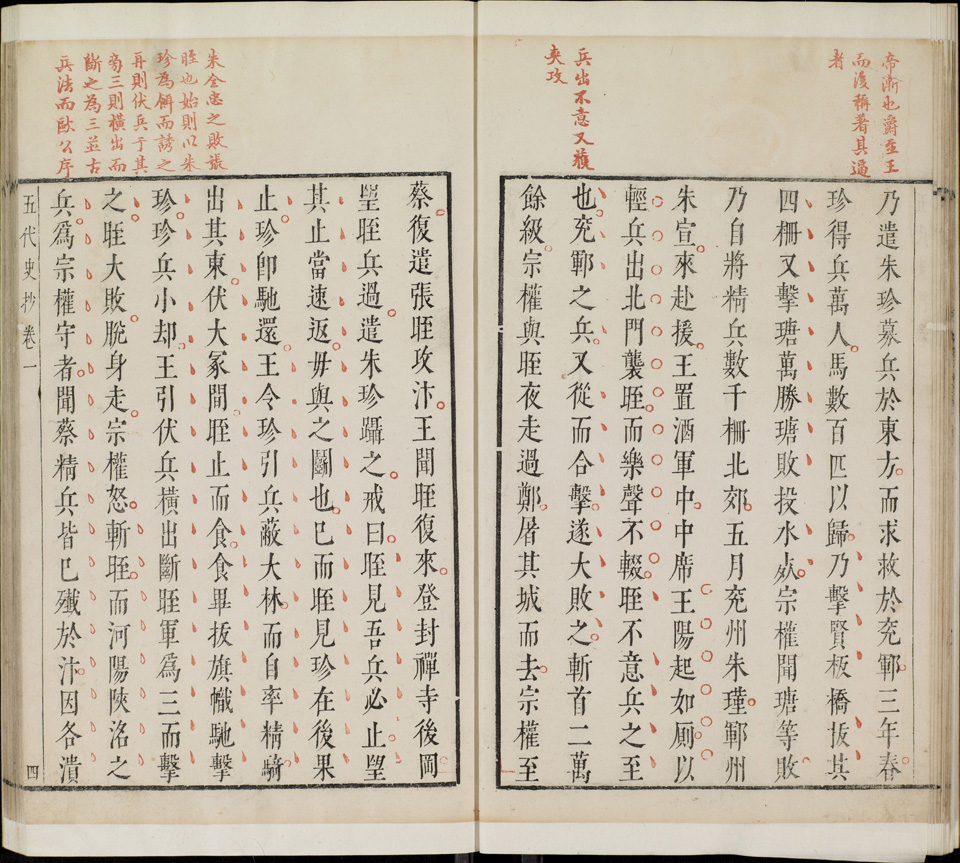 帝漸也濟至王
而後稱著其逼
者
兵出不意又獲
夾攻
乃遣朱珍募兵於東方而求救於兗鄆三年春
珍得兵萬人馬數百匹以歸乃擊賢板橋拔其
四柵又擊瑭萬勝瑭敗投水死宗權聞瑭等敗
乃自將精兵數千柵北郊五月兗州朱瑾鄆州
朱宣來赴援王置酒軍中中席王陽起如厠以
輕兵出北門襲晊而樂聲不輟晊不意兵之至
也兗鄆之兵又從而合擊遂大敗之斬首二萬
餘級宗權與晊夜走過鄭屠其城而去宗權至
朱全忠之敗張
晊也始則以朱
珍為餌而誘之
再則伏兵于其
旁三則橫出而
斷之為三並古
兵法而歐公序
蔡復遣張晊攻汴王聞晊復來登封禪寺後岡
望晊兵過遣朱珍躡之戒曰晊見吾兵必止望
其止當速返毋與之鬬也已而晊見珍在後果
止珍卽馳還王令珍引兵蔽大林而自率精騎
出其東伏大冢間晊止而食食畢拔旗幟馳擊
珍珍兵小却王引伏兵橫出斷晊軍爲三而擊
之晊大敗脫身走宗權怒斬晊而河陽陝洛之
兵爲宗權守者聞蔡精兵皆已殲於汴因各潰
五代史抄卷一
四